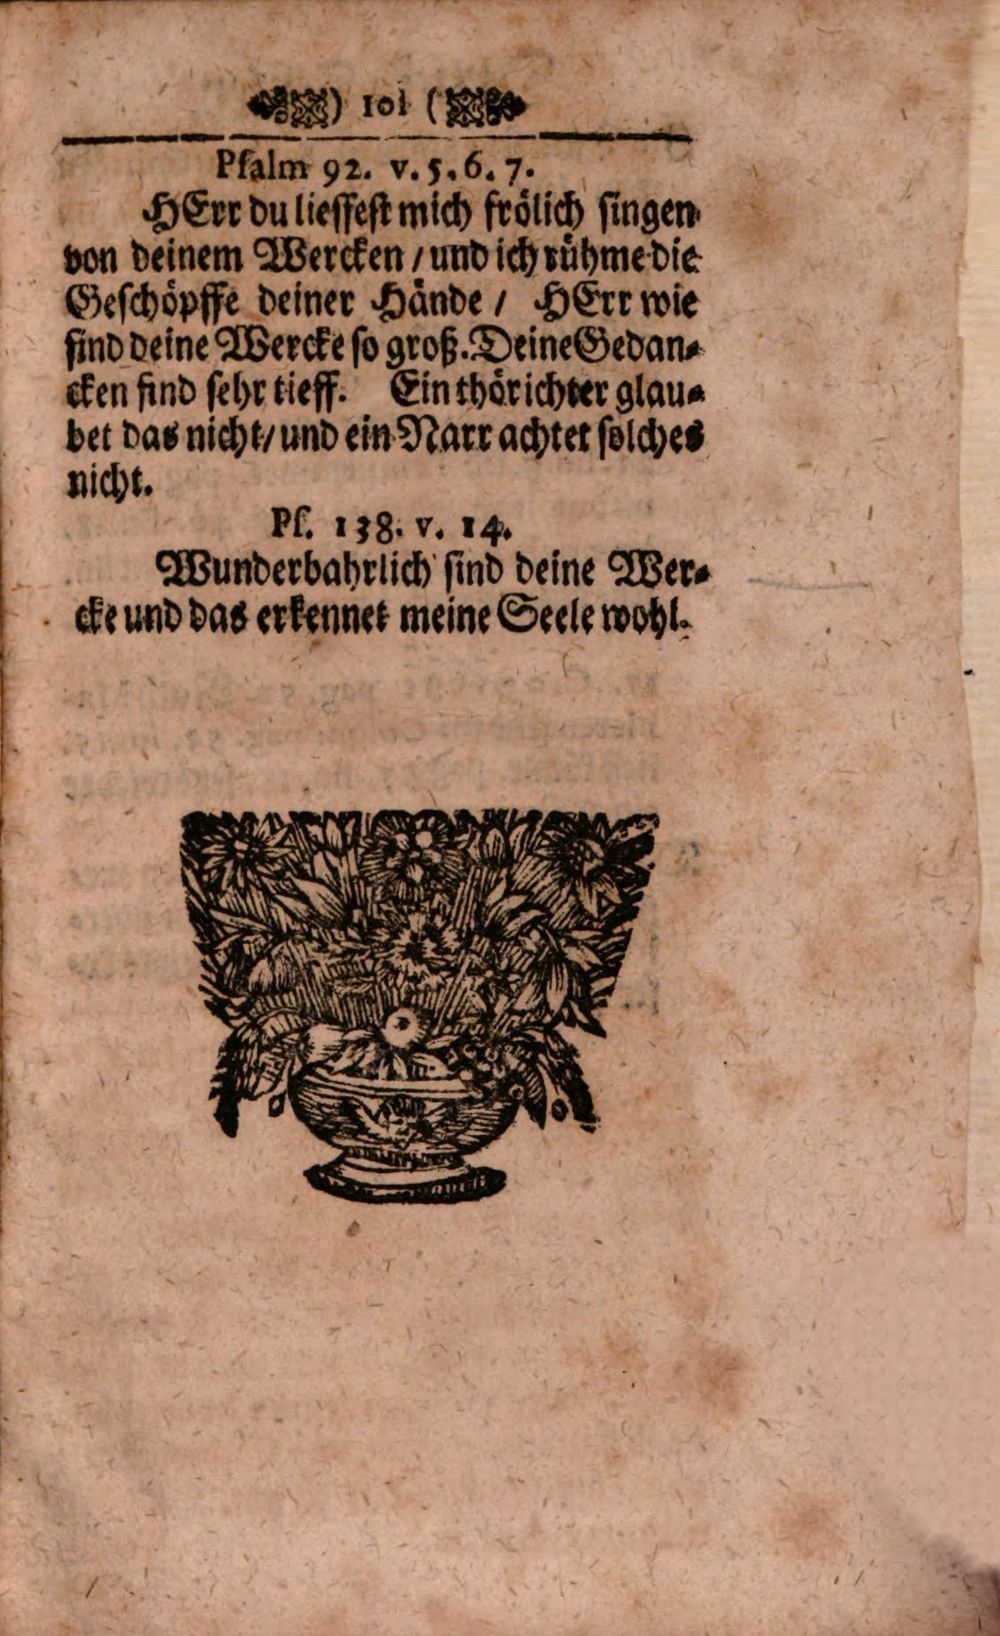 ) 101 (
Psalm 92. v. 5. 6. 7.
HErr du liessest mich frölich singen
von deinem Wercken / und ich rühme die
Geschöpffe deiner Hände / HErr wie
sind deine Wercke so groß. Deine Gedan-
cken sind sehr tieff. Ein thörichter glau-
bet das nicht / und ein Narr achtet solches
nicht.
Ps. 138. v. 14.
Wunderbahrlich sind deine Wer-
cke und das erkennet meine Seele wohl.